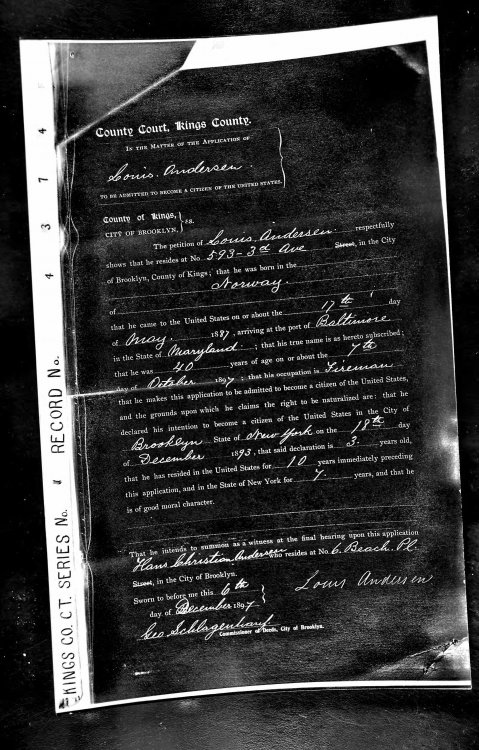 County Court, Kings County.
IN THE MATTER OF THE APPLICATION OF
Louis. Andersen
TO BE ADMITTED TO BECOME A CITIZEN OF THE UNITED STATES.
County of Kings, } ss.
CITY OF BROOKLYN,
The petition of Louis. Andersen respectfully
shows that he resides at No 593-3d Ave Street, in the City
of Brooklyn, County of Kings; that he was born in the
Norway.
of
that he came to the United States on or about the 17th day
of May 1887, arriving at the port of Baltimore
in the State of Maryland. ; that his true name is as hereto subscribed;
that he was 40 years of age on or about the 7th
day of October 1897; that his occupation is Fireman
that he makes this application to be admitted to become a citizen of the United States,
and the grounds upon which he claims the right to be naturalized are: that he
declared his intention to become a citizen of the United States in the City of
Brooklyn State of New York on the 18th day
of December 1893, that said declaration is 3. years old,
that he has resided in the United States for 10 years immediately preceding
this application, and in the State of New York for 7. years, and that he
is of good moral character.
That he intends to summon as a witness at the final hearing upon this application
Hans Christian. Andersen who resides at No. 6. Beach. Pl.
Street, in the City of Brooklyn.
Sworn to before me this 6th
day of December 1897
Louis Andersen
Geo. Schlagenhauf
Commissioner of Deeds, City of Brooklyn.
KINGS CO. CT. SERIES No. RECORD No. 4 3 7 4